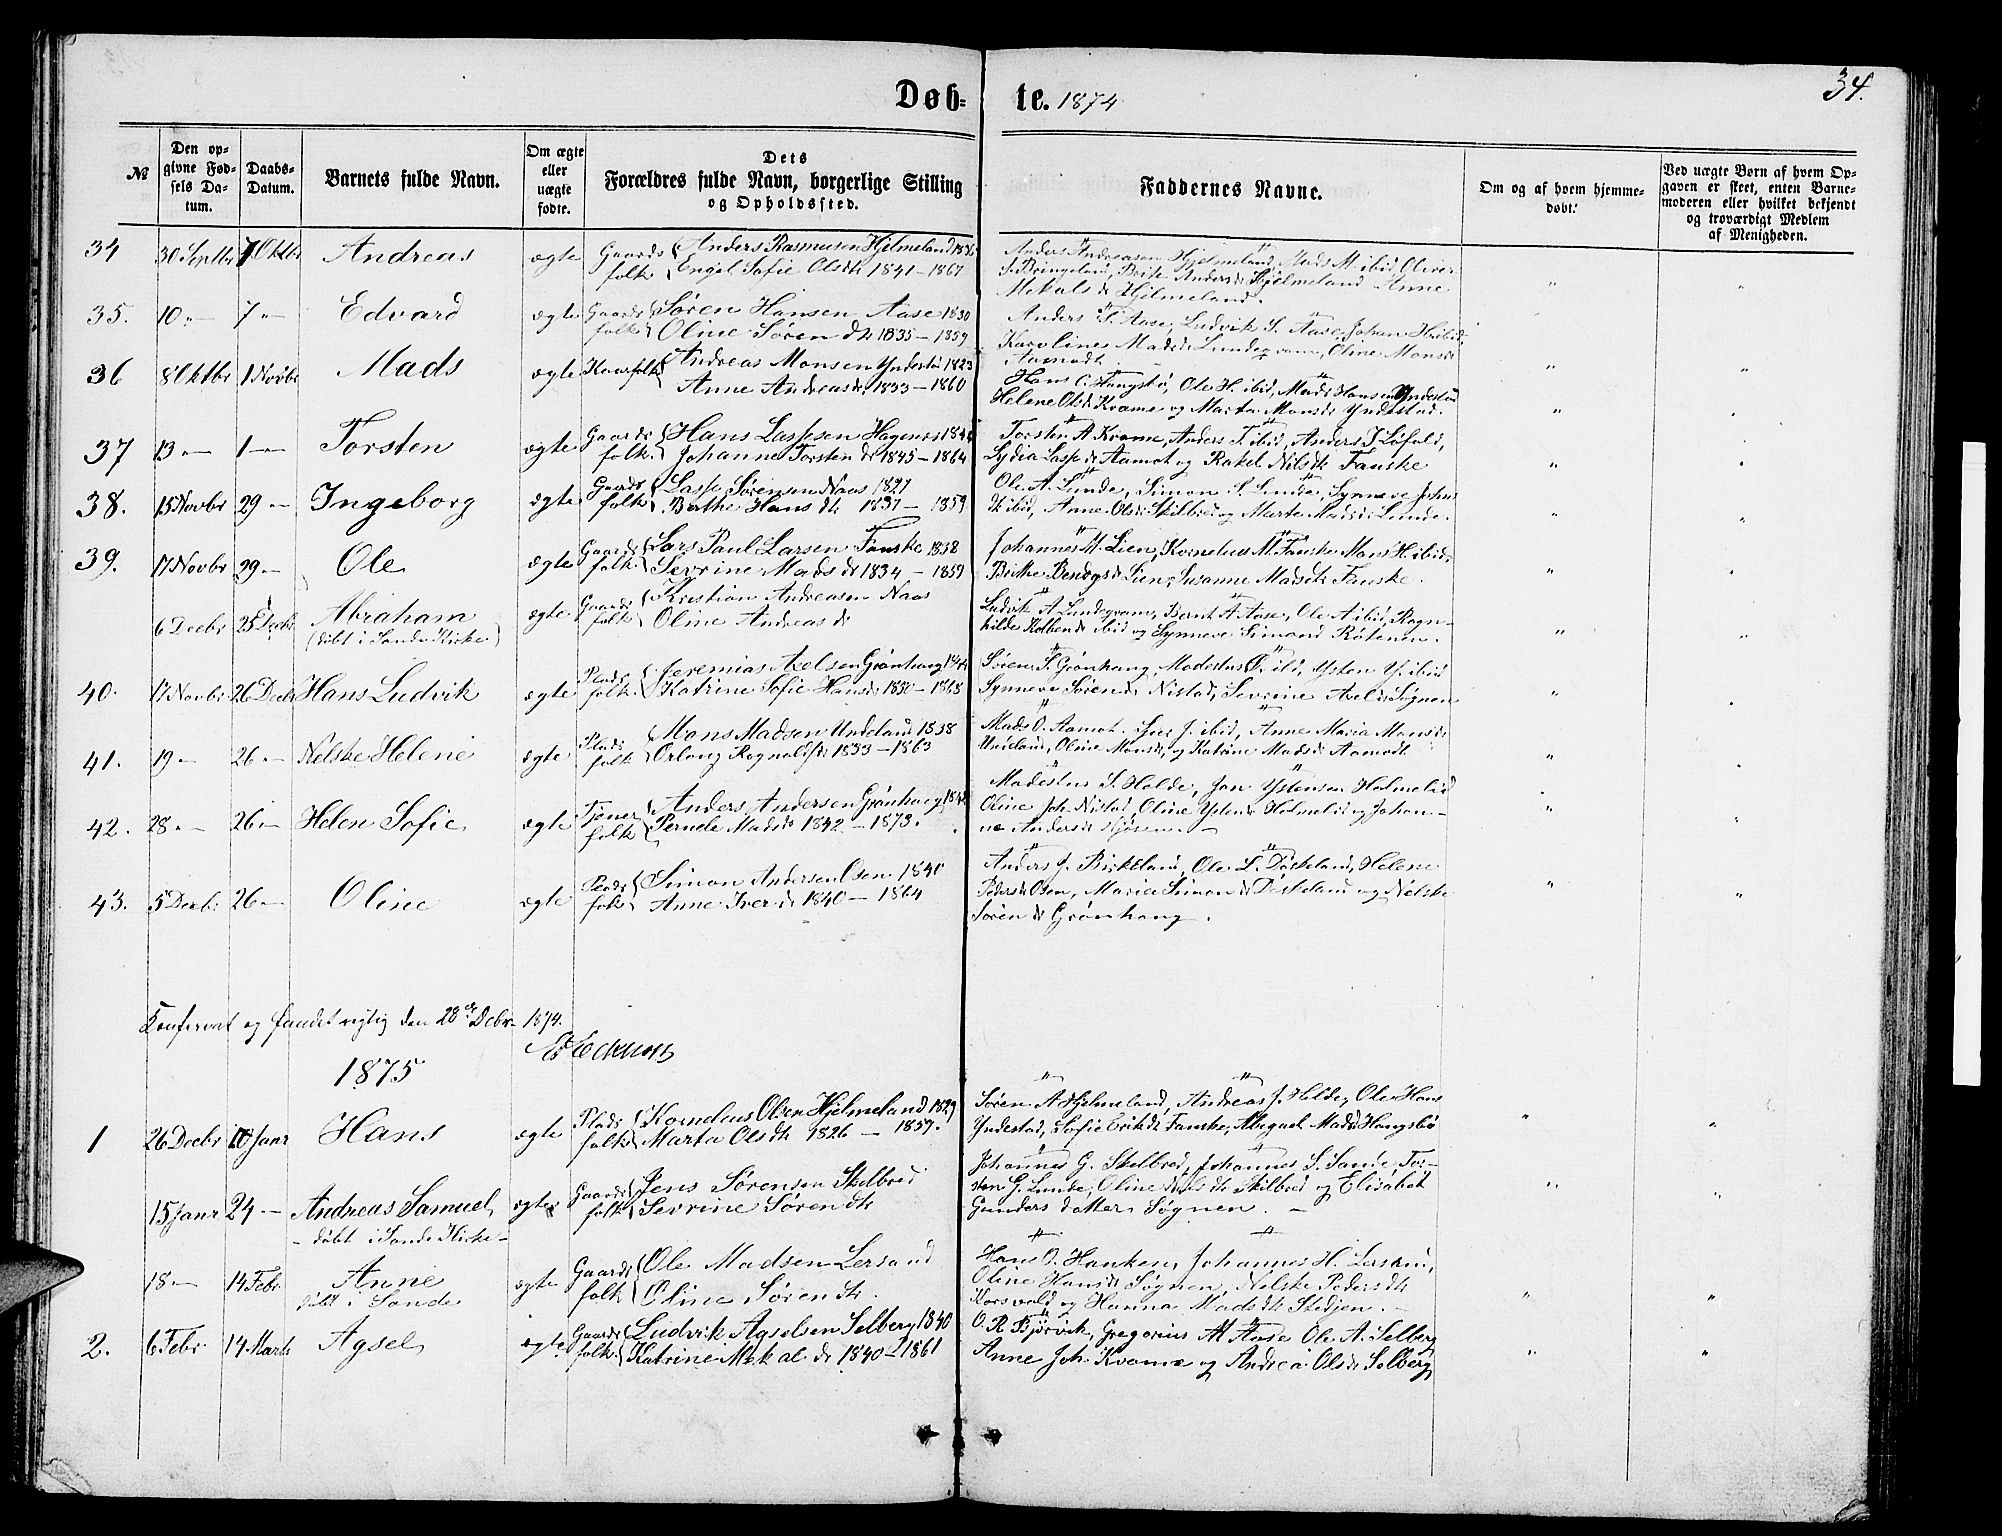 Døb-
te. 1874
34.
№
Den op-
givne Fød-
sels Da-
tum.
Daabs-
Datum.
Barnets fulde Navn.
Om ægte
eller
uægte
fødte.
Dets
Forældres fulde Navn, borgerlige Stilling
og Opholdssted.
Faddernes Navne.
Om og af hvem hjemme-
døbt.
Ved uægte Børn af hvem Op-
gaven er skeet, enten Barne-
moderen eller hvilket bekjendt
og troværdigt Medlem
af Menigheden.
34 30 Septbr Oktbr Andreas ægte Gaard folk Anders Rasmusen Hjelmeland
Engel Sofie Olsdr 1841-1867
Anders Andreasen Hjelmeland, Mads M. ibid, Oliver
S. Bringeland, Brite Andersdr Hjelmeland Anne
Mekalsdr Hjelmeland.
35. 10 " 7 " Edvard ægte Gaard folk Søren Hansen Aase 1830
Oline Sørendtr 1835-1859
Anders S. Aase, Ludvik S. Aase, Johan H. ibid,
Karolines Madsdr Lundegvam, Oline Monsdr
Aamodt
36 8 Oktbr 1 Novbr Mads ægte Kaarfolk Andreas Monsen Yndestad 1823
Anne Andreasdr 1833-1860
Hans C. Hangsbø, Ole H. ibid, Mads Hansen Yndestad
Helene Olsdr Kvame og Marta Monsdr Yndestad.
37 13 " 1 " Torsten ægte Gaard folk Hans Lassesen Hagenes
Johanne Torstendr 1845-1864
Torsten A Kvame, Anders T. ibid, Anders J Løfald,
Lydia Lassedr Aamot og Rakel Nilsdtr Fauske
38. 15 Novbr 29 " Ingeborg ægte Gaard folk Lasse Sørensen Naas 1827
Berthe Hansdtr 1837-1859
Ole A. Lunde, Simon S. Lunde, Synneve Johns
dtr ibid, Anne Olsdr Skilbred og Marte Madsdr Lunde.
39. 17 Novbr 29 " Ole ægte Gaard folk Lars Paul Larsen Fauske 1838
Sevrine Madsdr 1834-1859
Johannes M. Lien, Kornelius M. Fauske Mons H. ibid,
Brithe Lien, Susanne Madsdtr Fauske.
6 Decbr 25 Decbr Abraham
(døbt i Sande Kirke) ægte Gaard folk Kristian Andreasen Naas
Oline Andreasdr
Ludvik A Lundegvam, Bernt A Aase, Ole A ibid, Ragn-
hilde Kolbendr ibid og Synneve Simonsd
40. 17 Novbr 26 Decbr Hans Ludvik ægte Plads folk Jeremias Axelsen Grønhaug
Katrine Sofie Hansdr 1830-1868
Søren S. Grønhaug, Modestus ibid, Ysten Y. ibid
Synneve Sørendr Nistad, Sevrine Axelsdr Søgnen
41. 19 " 26 " Nelske Helene ægte Plads folk Mons Madsen Undeland 1838
Ragnaldsdr 1833-1863
Mads O. Aamot, Iver J. ibid, Anne Maria Monsdr
Undeland, Oline Monsdr, og Katrine Madsdr Aamodt
42. 28 " 26 " Helen Sofie ægte Tjener folk Anders Andersen Grønhaug
Pernele Madsdr 1842-1873.
Modestus S. Holde, Jon Ystensen Holmelid
Oline Joh. Nistad, Oline Ystensdr Holmelid og Johan-
ne Andersdr Hjøsen. -
43. 5 Decbr 26 " Oline ægte Plads folk Simon Andersen Osen 1840
Anne Iversdr 1840-1864
Anders J. Birkeland, Ole L. Døskeland, Helene
Pedersdr Osen, Maria Simondr Døskeland og Nelske
Sørendr Grønhaug.
Konfereret og fundet rigtig den 28de Decbr 1874.
1875
1 26 Decbr 10 Janr Hans ægte Plads folk Kornelius Olsen Hjelmeland 1829
Marta Olsdtr 1826-1857.
Søren A Hjelmeland, Andreas J. Holde, Ole Hans
Yndestad, Sofie Erikdtr Fauske, Abigael Madsdr Hangsbø
15 Janr 24 " Andreas Samuel
- døbt i Sande Kirke - ægte Gaard folk Jens Sørensen Skelbred
Sevrine Sørendtr
Johannes G. Skelbred, Johannes S. Sande, Tor-
sten G. Lunde, Oline dtr Skilbred og Elisabet
Gunders datter Søgnen. -
18 " 14 Febr Anne
døbt i Sande ægte Gaard folk Ole Madsen Lersand
Oline Sørendtr.
Hans O. Hanken, Johannes H.
Oline Hansdr Søgnen, Nelske Pedersdtr
Korsvold og Hanna Madsdtr Stedjen. -
2. 6 Febr 14 Marts Agsel ægte Gaard folk Ludvik Agselsen Selberg 1840
Katrine Mekaldr 1840-1861
O. R Bjørvik, Gregorius M Aase Ole A. Selberg
Anne Joh. Kvame og Andrea Olsdr Selberg